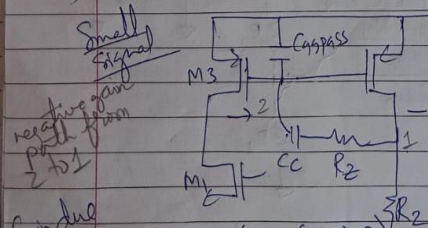 Small
Signal
negative gain
path from
2 to 1
Cgspass
M3
2
1
Cc
Rz
M1
R2